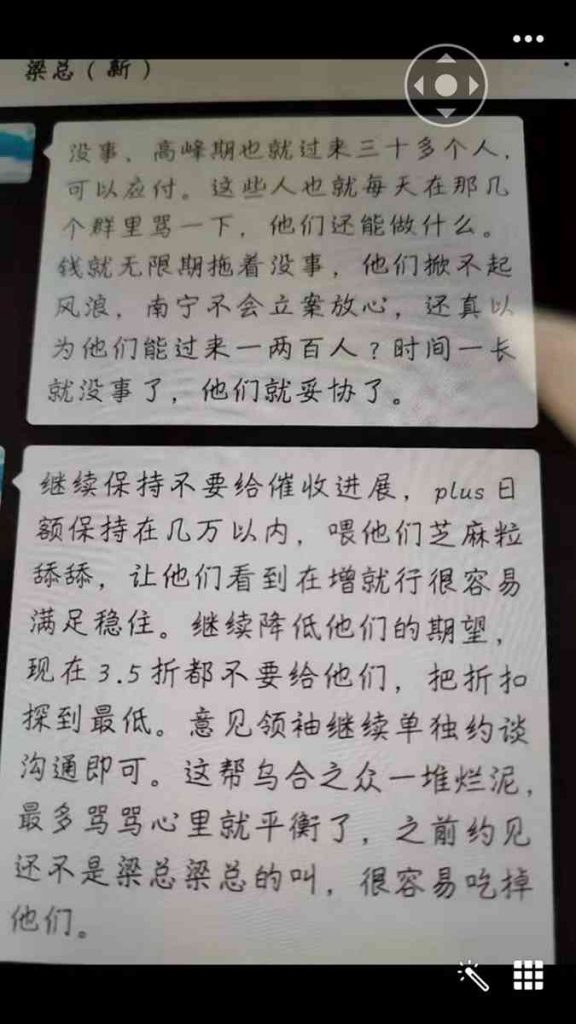 梁总（新）
没事，高峰期也就过来三十多个人，
可以应付。这些人也就每天在那几
个群里骂一下，他们还能做什么。
钱就无限期拖着没事，他们掀不起
风浪，南宁不会立案放心，还真以
为他们能过来一两百人？时间一长
就没事了，他们就妥协了。
继续保持不要给催收进展，plus日
额保持在几万以内，喂他们芝麻粒
舔舔，让他们看到在增就行很容易
满足稳住。继续降低他们的期望，
现在3.5折都不要给他们，把折扣
探到最低。意见领袖继续单独约谈
沟通即可。这帮乌合之众一堆烂泥，
最多骂骂心里就平衡了，之前约见
还不是梁总梁总的叫，很容易吃掉
他们。